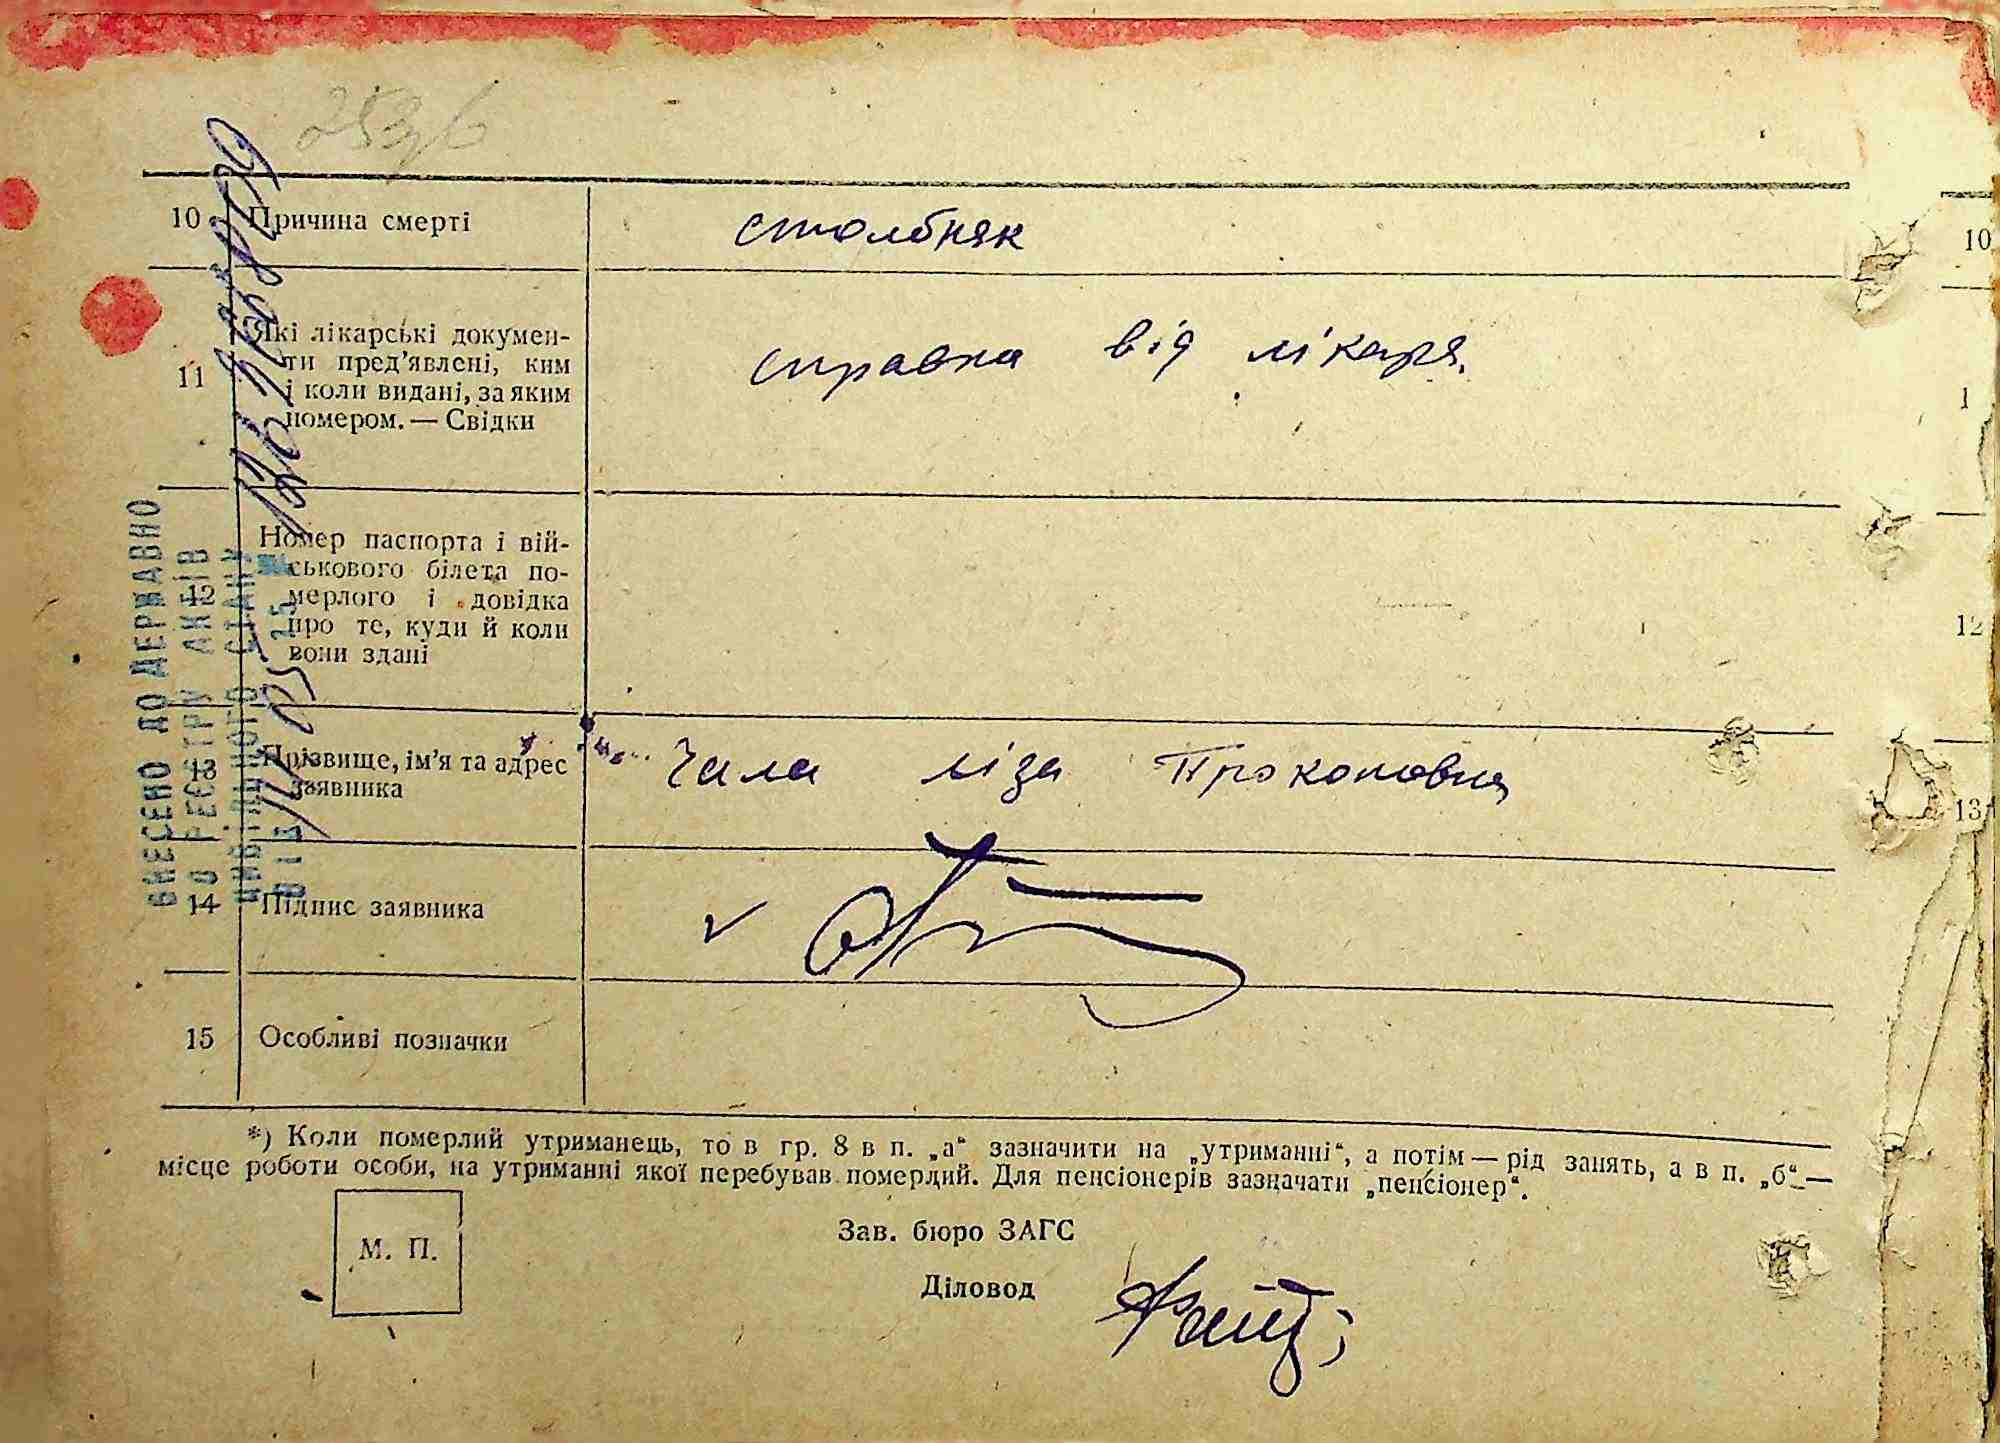 10 Причина смерті столбняк
11 Які лікарські докумен-
ти пред'явлені, ким
і коли видані, за яким
номером. — Свідки
справка від лікаря
12 Номер паспорта і вій-
ськового білета по-
мерлого і довідка
про те, куди й коли
вони здані
13 Прізвище, ім'я та адрес
заявника
Чала Ліза Прокоповна
14 Підпис заявника
15 Особливі позначки
*) Коли померлий утриманець, то в гр. 8 в п. „а“ зазначити на „утриманні“, а потім — рід занять, а в п. „б“ —
місце роботи особи, на утриманні якої перебував померлий. Для пенсіонерів зазначати „пенсіонер“.
М. П.
Зав. бюро ЗАГС
Діловод
ВНЕСЕНО ДО ДЕРЖАВНО
ГО РЕЄСТРУ АКТІВ
ЦИВІЛЬНОГО СТАНУ
ВІД
10
12
13